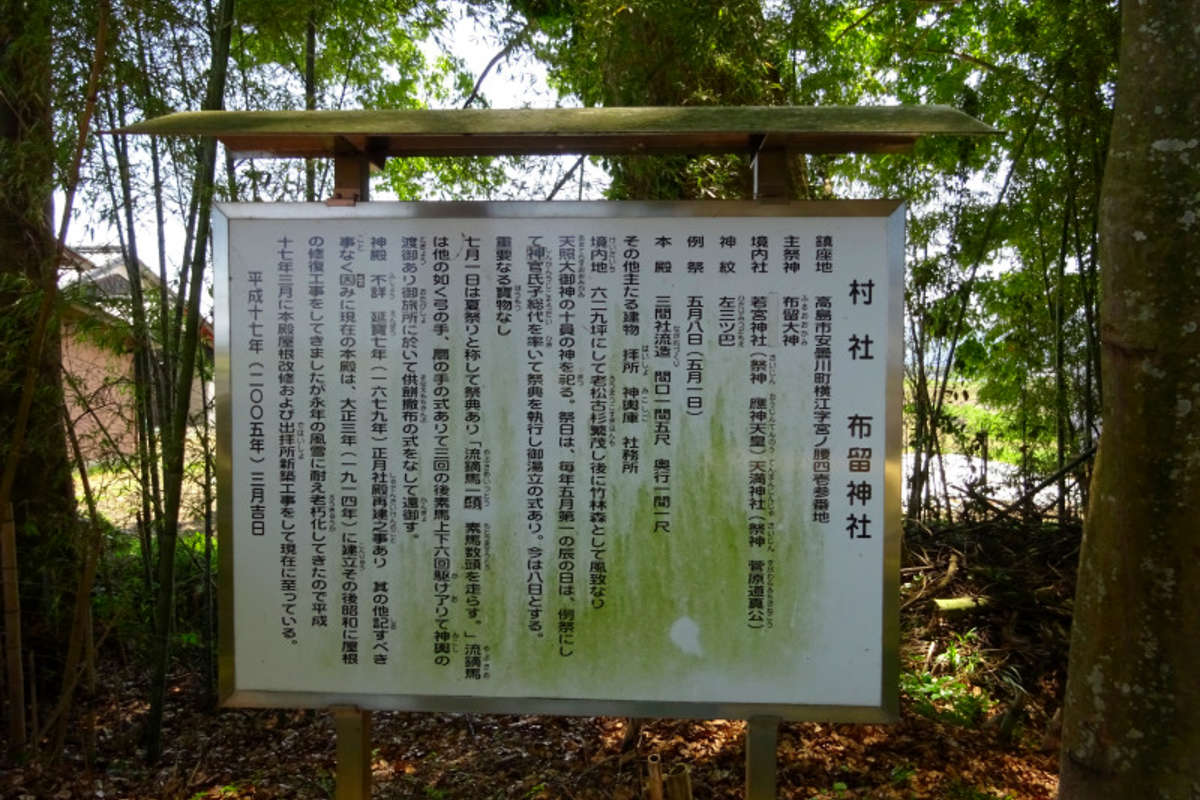 村社 布留神社
鎮座地 高島市安曇川町横江字宮ノ腰四壱参番地
主祭神 布留大神
境内社 若宮神社（祭神 應神天皇）天満神社（祭神 菅原道真公）
神紋 左三ツ巴
例祭 五月八日（五月一日）
本殿 三間社流造 間口一間五尺 奥行一間一尺
その他主たる建物 拝所 神輿庫 社務所
境内地 六二九坪にして老松古杉繁茂し後に竹林森として風致なり
天照大御神の十員の神を祀る。祭日は、毎年五月第一の辰の日は、例祭にし
て神官氏子総代を率いて祭典を執行し御湯立の式あり。今は八日とする。
重要なる寶物なし
七月一日は夏祭りと称して祭典あり「流鏑馬一頭 素馬数頭を走らす。」流鏑馬
は他の如く弓の手、扇の手の式ありて三回の後素馬上下六回駆け了りて神輿の
渡御あり御旅所に於いて供餅撒布の式をなして還御す。
神殿 不詳 延寶七年（一六七九年）正月社殿再建之事あり 其の他記すべき
事なく因みに現在の本殿は、大正三年（一九一四年）に建立その後昭和に屋根
の修復工事をしてきましたが永年の風雪に耐え老朽化してきたので平成
十七年三月に本殿屋根改修および出拝所新築工事をして現在に至っている。
平成十七年（二〇〇五年）三月吉日